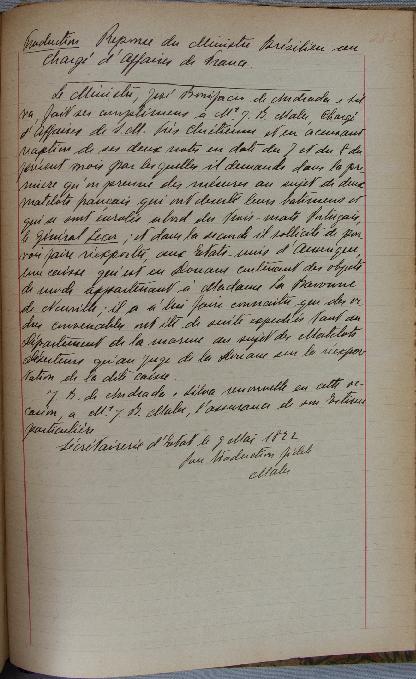 Traduction Réponse du Ministre Brésilien au
Chargé d'Affaires de France.
Le Ministre, José Bonifacio de Andrada e Sil
va, fait ses complimens à Mr. J. B. Maler, Chargé
d'Affaires de S. M. très chrétienne et en accusant
réception de ses deux notes en date du 7 et du 8 du
présent mois par lesquelles il demande dans la pre
mière qu'on prenne des mesures au sujet de deux
matelots français qui ont déserté leurs bâtimens et
qui se sont à bord des trois-mats Portugais,
le Général Lecor; et dans la seconde il sollicite de pou
voir faire réexporter, aux Etats-unis d'Amérique
une caisse qui est en Douane contenant des objets
de mode appartenant à Madame la Baronne
de Neuville; il a à lui faire connaître que des or
dres convenables ont été de suite expédiés tant au
Département de la marine au sujet des Matelots
déserteurs qu'au Juge de la Douane sur la réexpor
tation de la dite caisse.
J. B. de Andrada e Silva renouvelle en cette oc
casion, à Mr. J. B. Maler, l'assurance de son Estime
particulière
Sécrétairerie d'Etat le 9 Mai 1822
Pour traduction fidèle
Maler